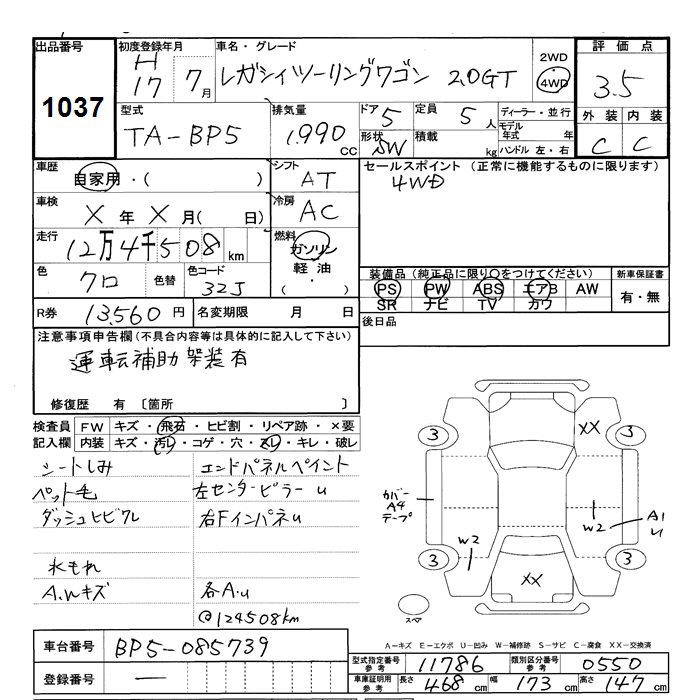 出品番号 初度登録年月 車名・グレード 2WD 評価点
1037 H17 7月 レガシィツーリングワゴン 2.0GT 4WD 3.5
型式 排気量 ドア 定員 ディーラー・並行 外装 内装
TA-BP5 1,990 CC 5 5人 モデル年式 年 C C
形状 SW 積載 kg ハンドル 左・右
車歴 自家用・( ) シフト AT セールスポイント (正常に機能するものに限ります)
4WD
車検 X年 X月( 日) 冷房 AC
走行 12万4千508km 燃料 ガソリン
軽油・( )
色 クロ 色替 色コード 32J 装備品(純正品に限り○をつけてください) 新車保証書
PS PW ABS エアB AW 有・無
SR ナビ TV カワ
R券 13,560円 名変期限 月 日 後日品
注意事項申告欄(不具合内容等は具体的に記入して下さい)
運転補助架装有
修復歴 有 〔箇所 〕
検査員 FW キズ・飛石・ヒビ割・リペア跡・×要
記入欄 内装 キズ・汚レ・コゲ・穴・スレ・キレ・破レ
シートしみ エンドパネルペイント
ペット毛 左センターピラーu
ダッシュヒビワレ 右Fインパネu
水もれ
A.Wキズ 各A.u
@124508km
XX
3 3
カバー
A4
テープ
W2 A1
u
W2
3 3
XX
スペア
A-キズ E-エクボ U-凹み W-補修跡 S-サビ C-腐食 XX-交換済
車台番号 BP5-085739
型式指定番号 参考 11786 類別区分番号 参考 0550
登録番号 — 車庫証明用 参考 長さ 468cm 幅 173cm 高さ 147cm